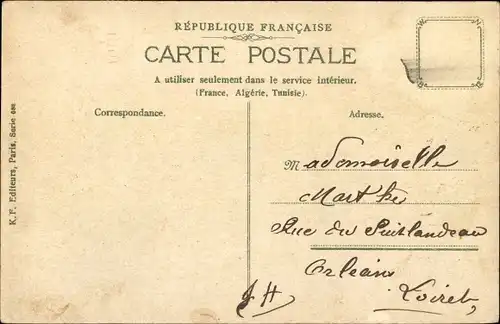 RÉPUBLIQUE FRANÇAISE
CARTE POSTALE
A utiliser seulement dans le service intérieur.
(France, Algérie, Tunisie).
Correspondance.
Adresse.
K. F. Editeurs, Paris, Serie
Mademoiselle
Marthe
Rue du Puitlandeau
Orléans
Loiret
JH